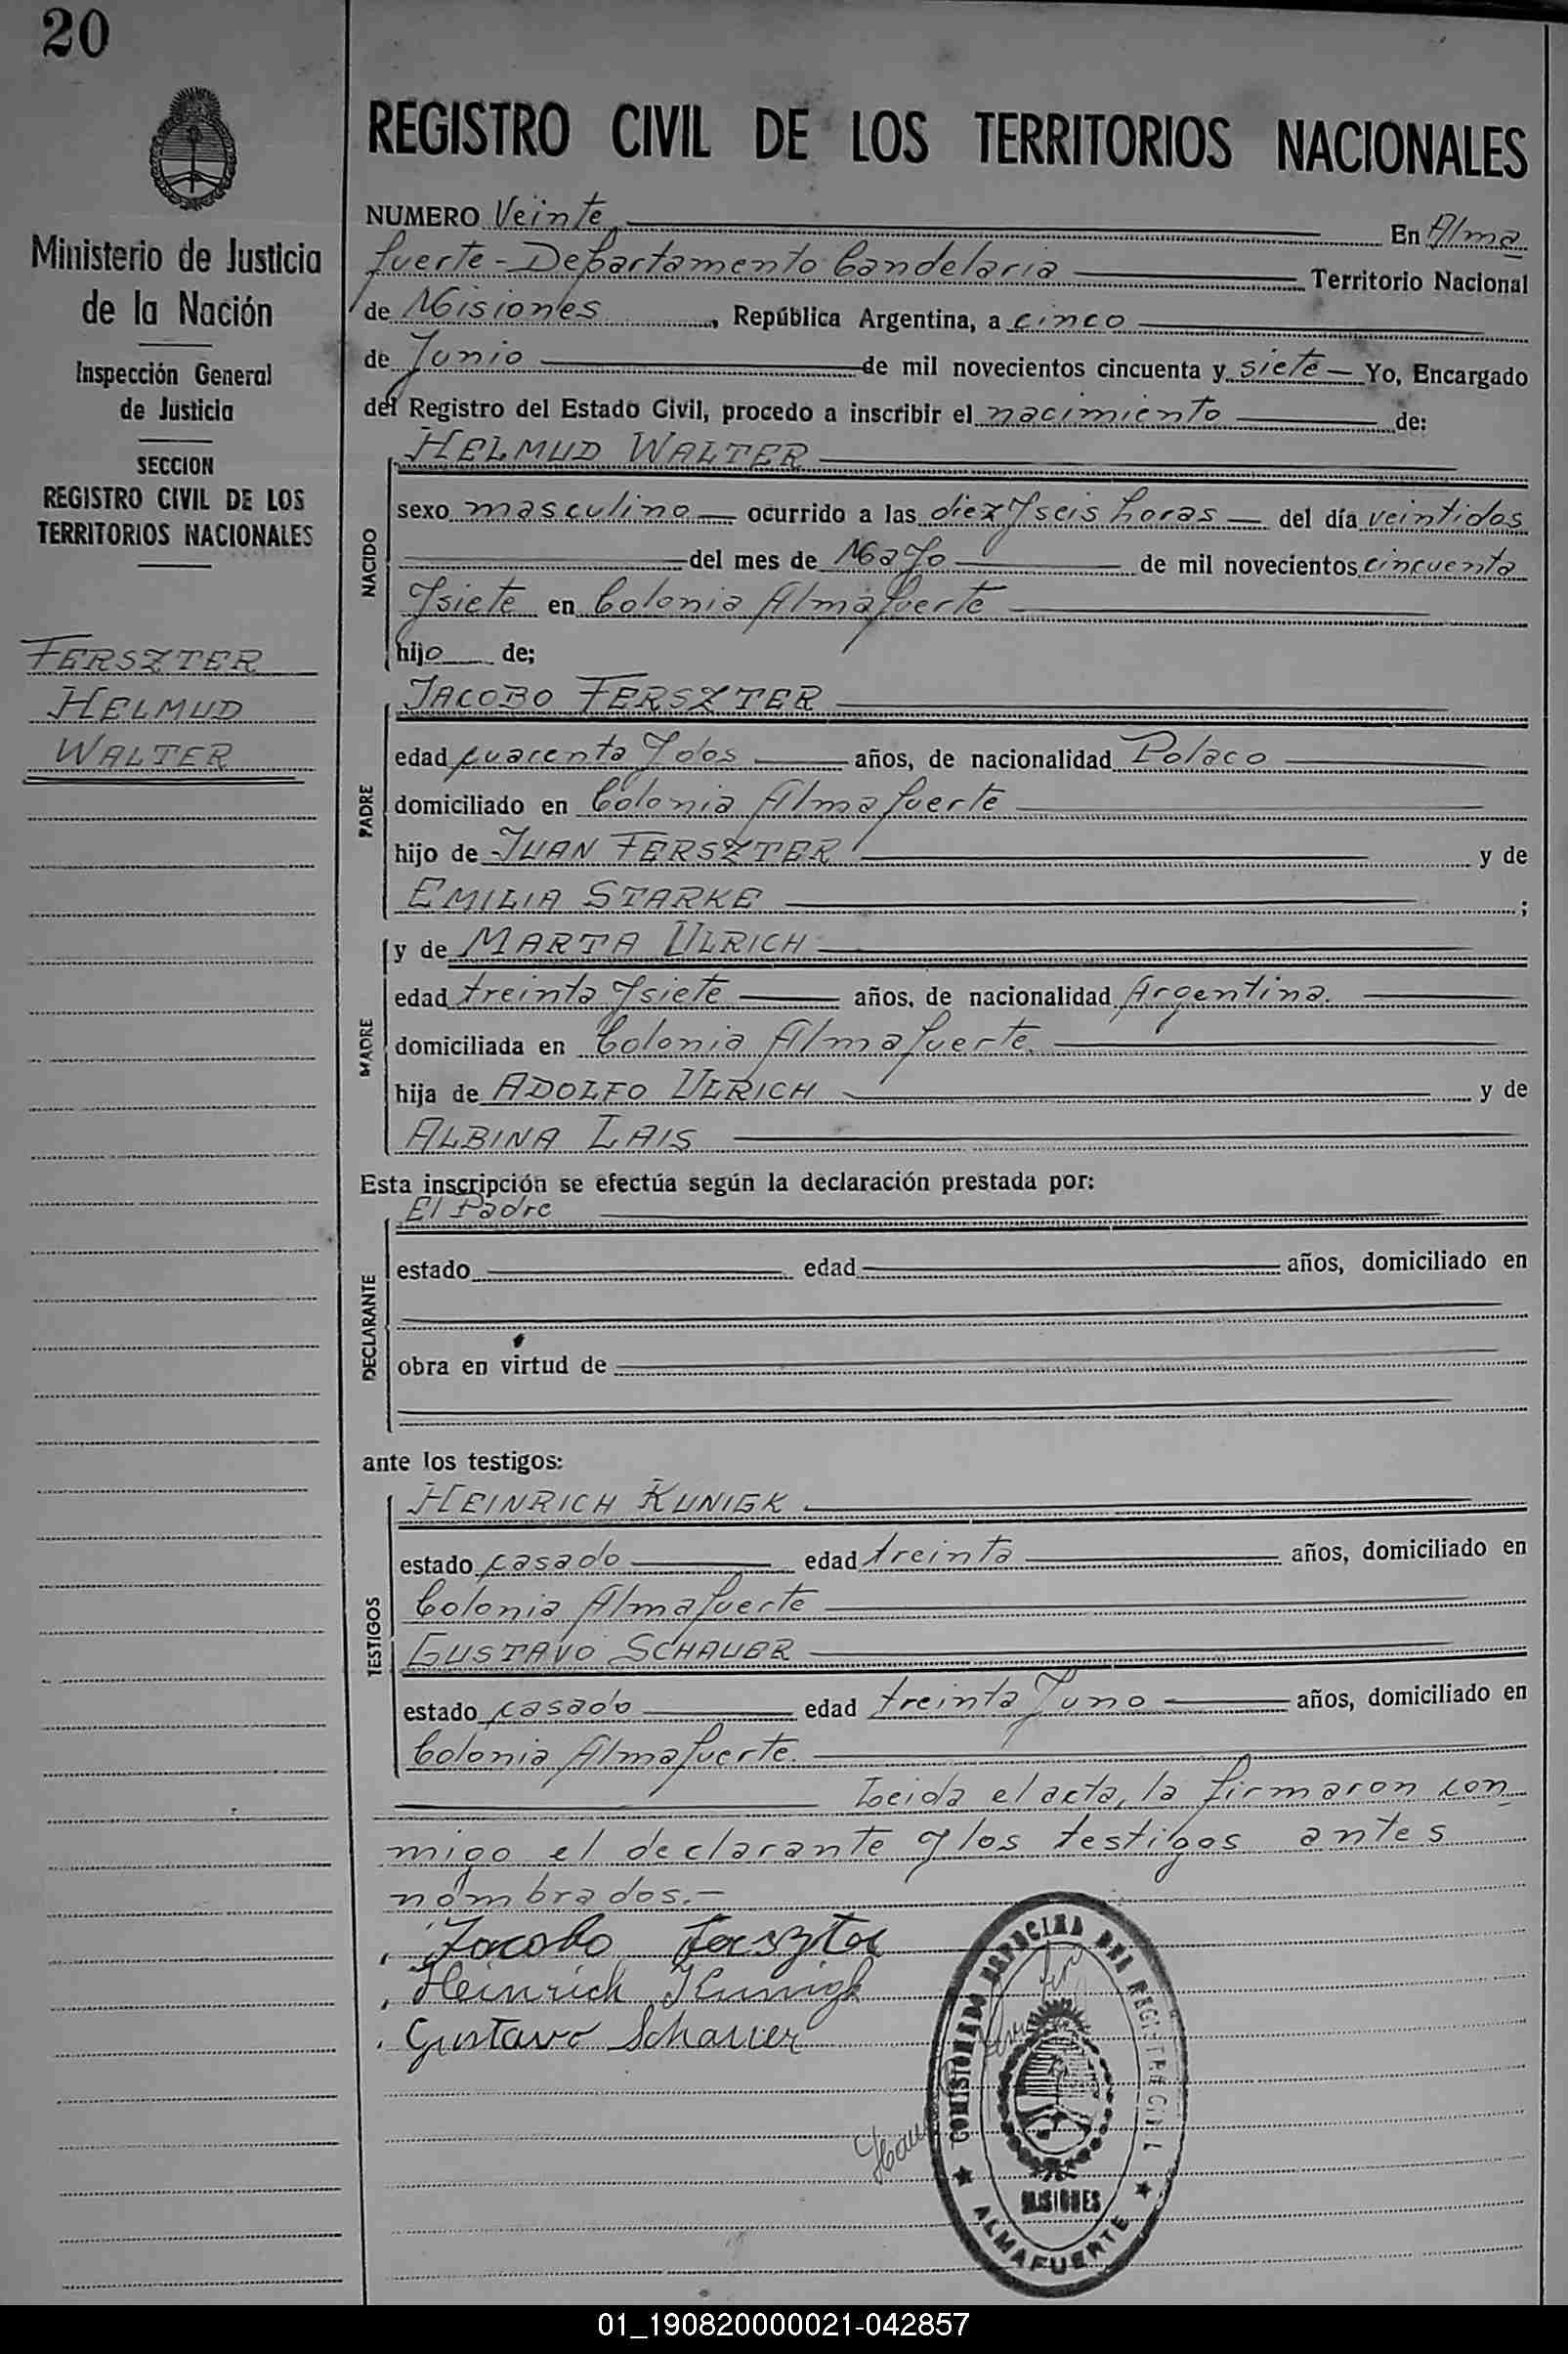 20
Ministerio de Justicia
de la Nación
Inspección General
de Justicia
SECCION
REGISTRO CIVIL DE LOS
TERRITORIOS NACIONALES
FERSZTER
HELMUD
WALTER
REGISTRO CIVIL DE LOS TERRITORIOS NACIONALES
NUMERO Veinte En Alma
fuerte - Departamento Candelaria Territorio Nacional
de Misiones, República Argentina, a cinco
de Junio de mil novecientos cincuenta y siete Yo, Encargado
del Registro del Estado Civil, procedo a inscribir el nacimiento de:
NACIDO
HELMUD WALTER
sexo masculino ocurrido a las diez y seis horas del día veintidos
del mes de Mayo de mil novecientos cincuenta
y siete en Colonia Almafuerte
hijo de;
PADRE
JACOBO FERSZTER
edad cuarenta y dos años, de nacionalidad Polaco
domiciliado en Colonia Almafuerte
hijo de JUAN FERSZTER y de
EMILIA STARKE ;
MADRE
y de MARTA ULRICH
edad treinta y siete años, de nacionalidad Argentina.
domiciliada en Colonia Almafuerte.
hija de ADOLFO ULRICH y de
ALBINA LAIS
Esta inscripción se efectúa según la declaración prestada por:
DECLARANTE
El Padre
estado edad años, domiciliado en
obra en virtud de
ante los testigos:
TESTIGOS
HEINRICH KUNIGK
estado casado edad treinta años, domiciliado en
Colonia Almafuerte
GUSTAVO SCHAUER
estado casado edad treinta y uno años, domiciliado en
Colonia Almafuerte.
Leida el acta, la firmaron con
migo el declarante y los testigos antes
nombrados.-
Jacobo Ferszter
Heinrich Kunigk
Gustavo Schauer
DEL REGISTRO CIVIL
MISIONES
ALMAFUERTE
01_190820000021-042857